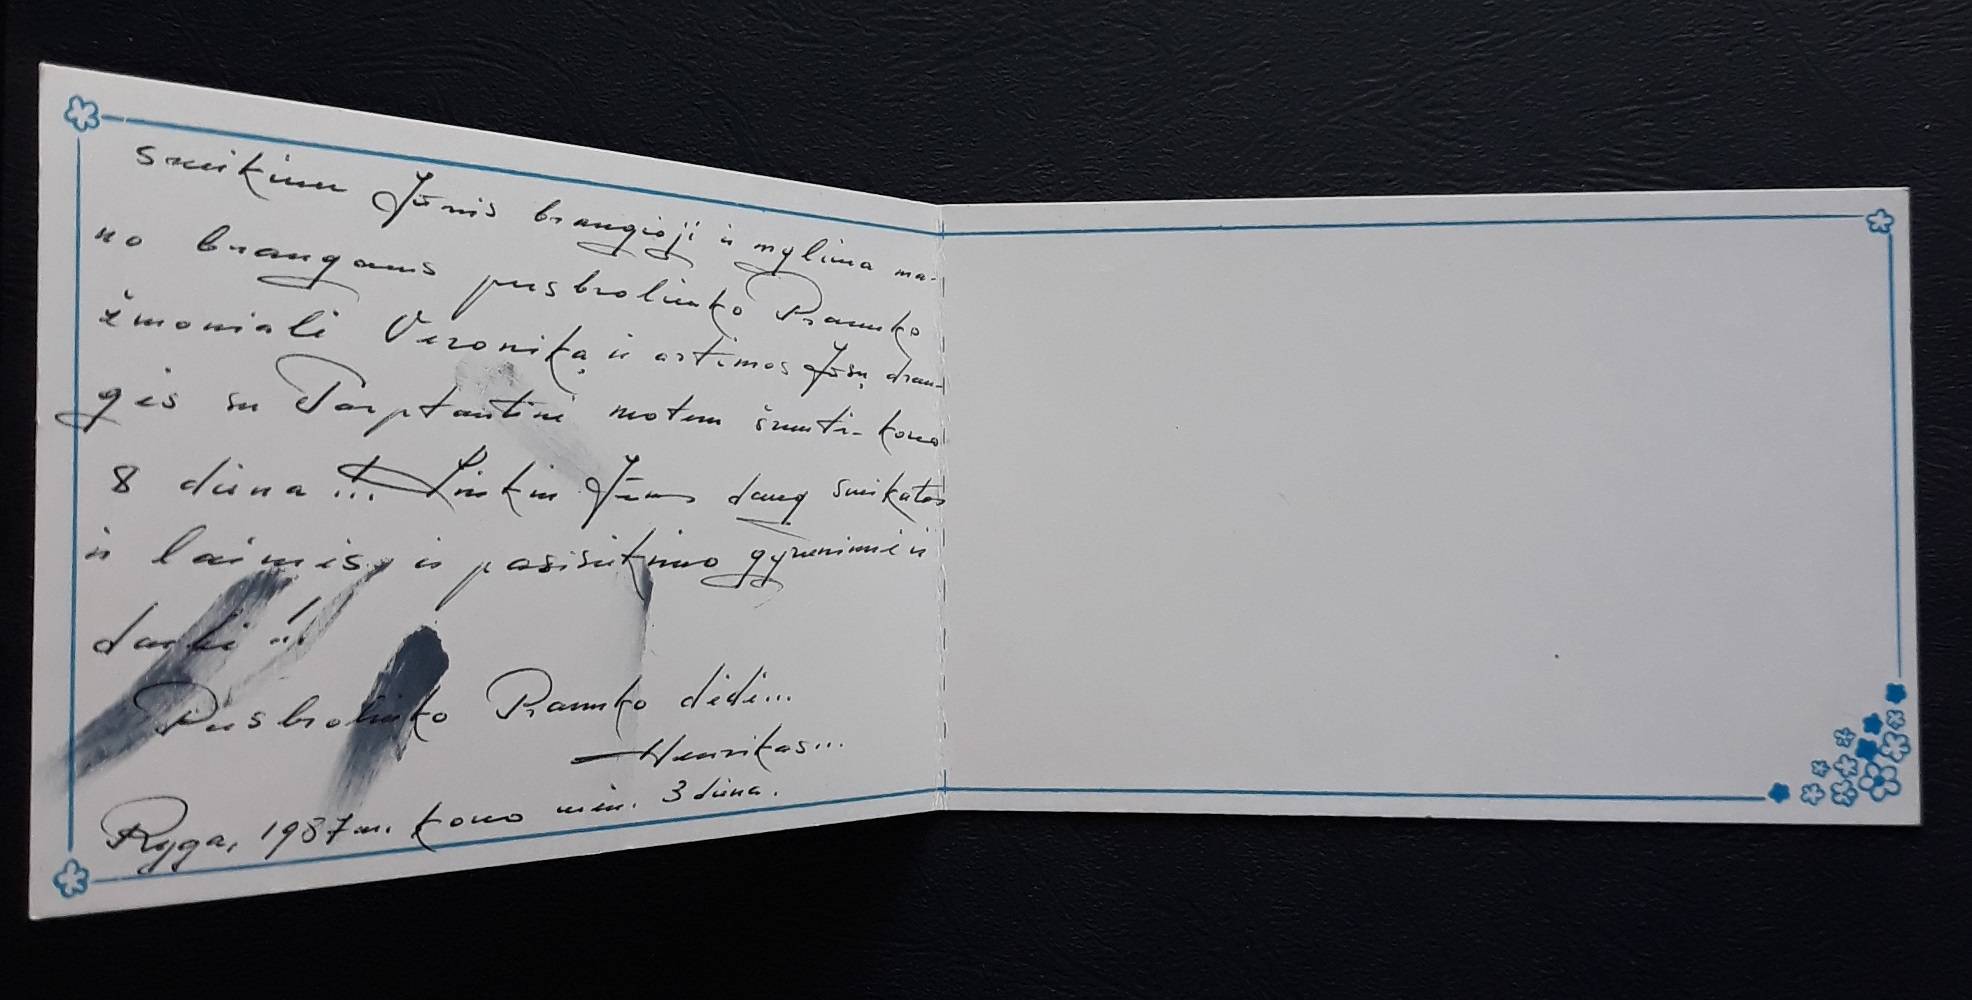 Sveikinu Jūmis brangioji ir mylima ma-
no brangaus pusbroliuko Pranuko
žmoniali Veroniką ir artimos Jūsų drau-
gės su Tarptautini motem šventi- kovo
8 diena ... Linkiu Jūms daug sveikatos
ir laimės, ir pasisekimo gyvenimi ir
darbi ...!
Pusbroliuko Pranuko dėdė...
Henrikas...
Ryga, 1987 m. kovo mėn. 3 diena.